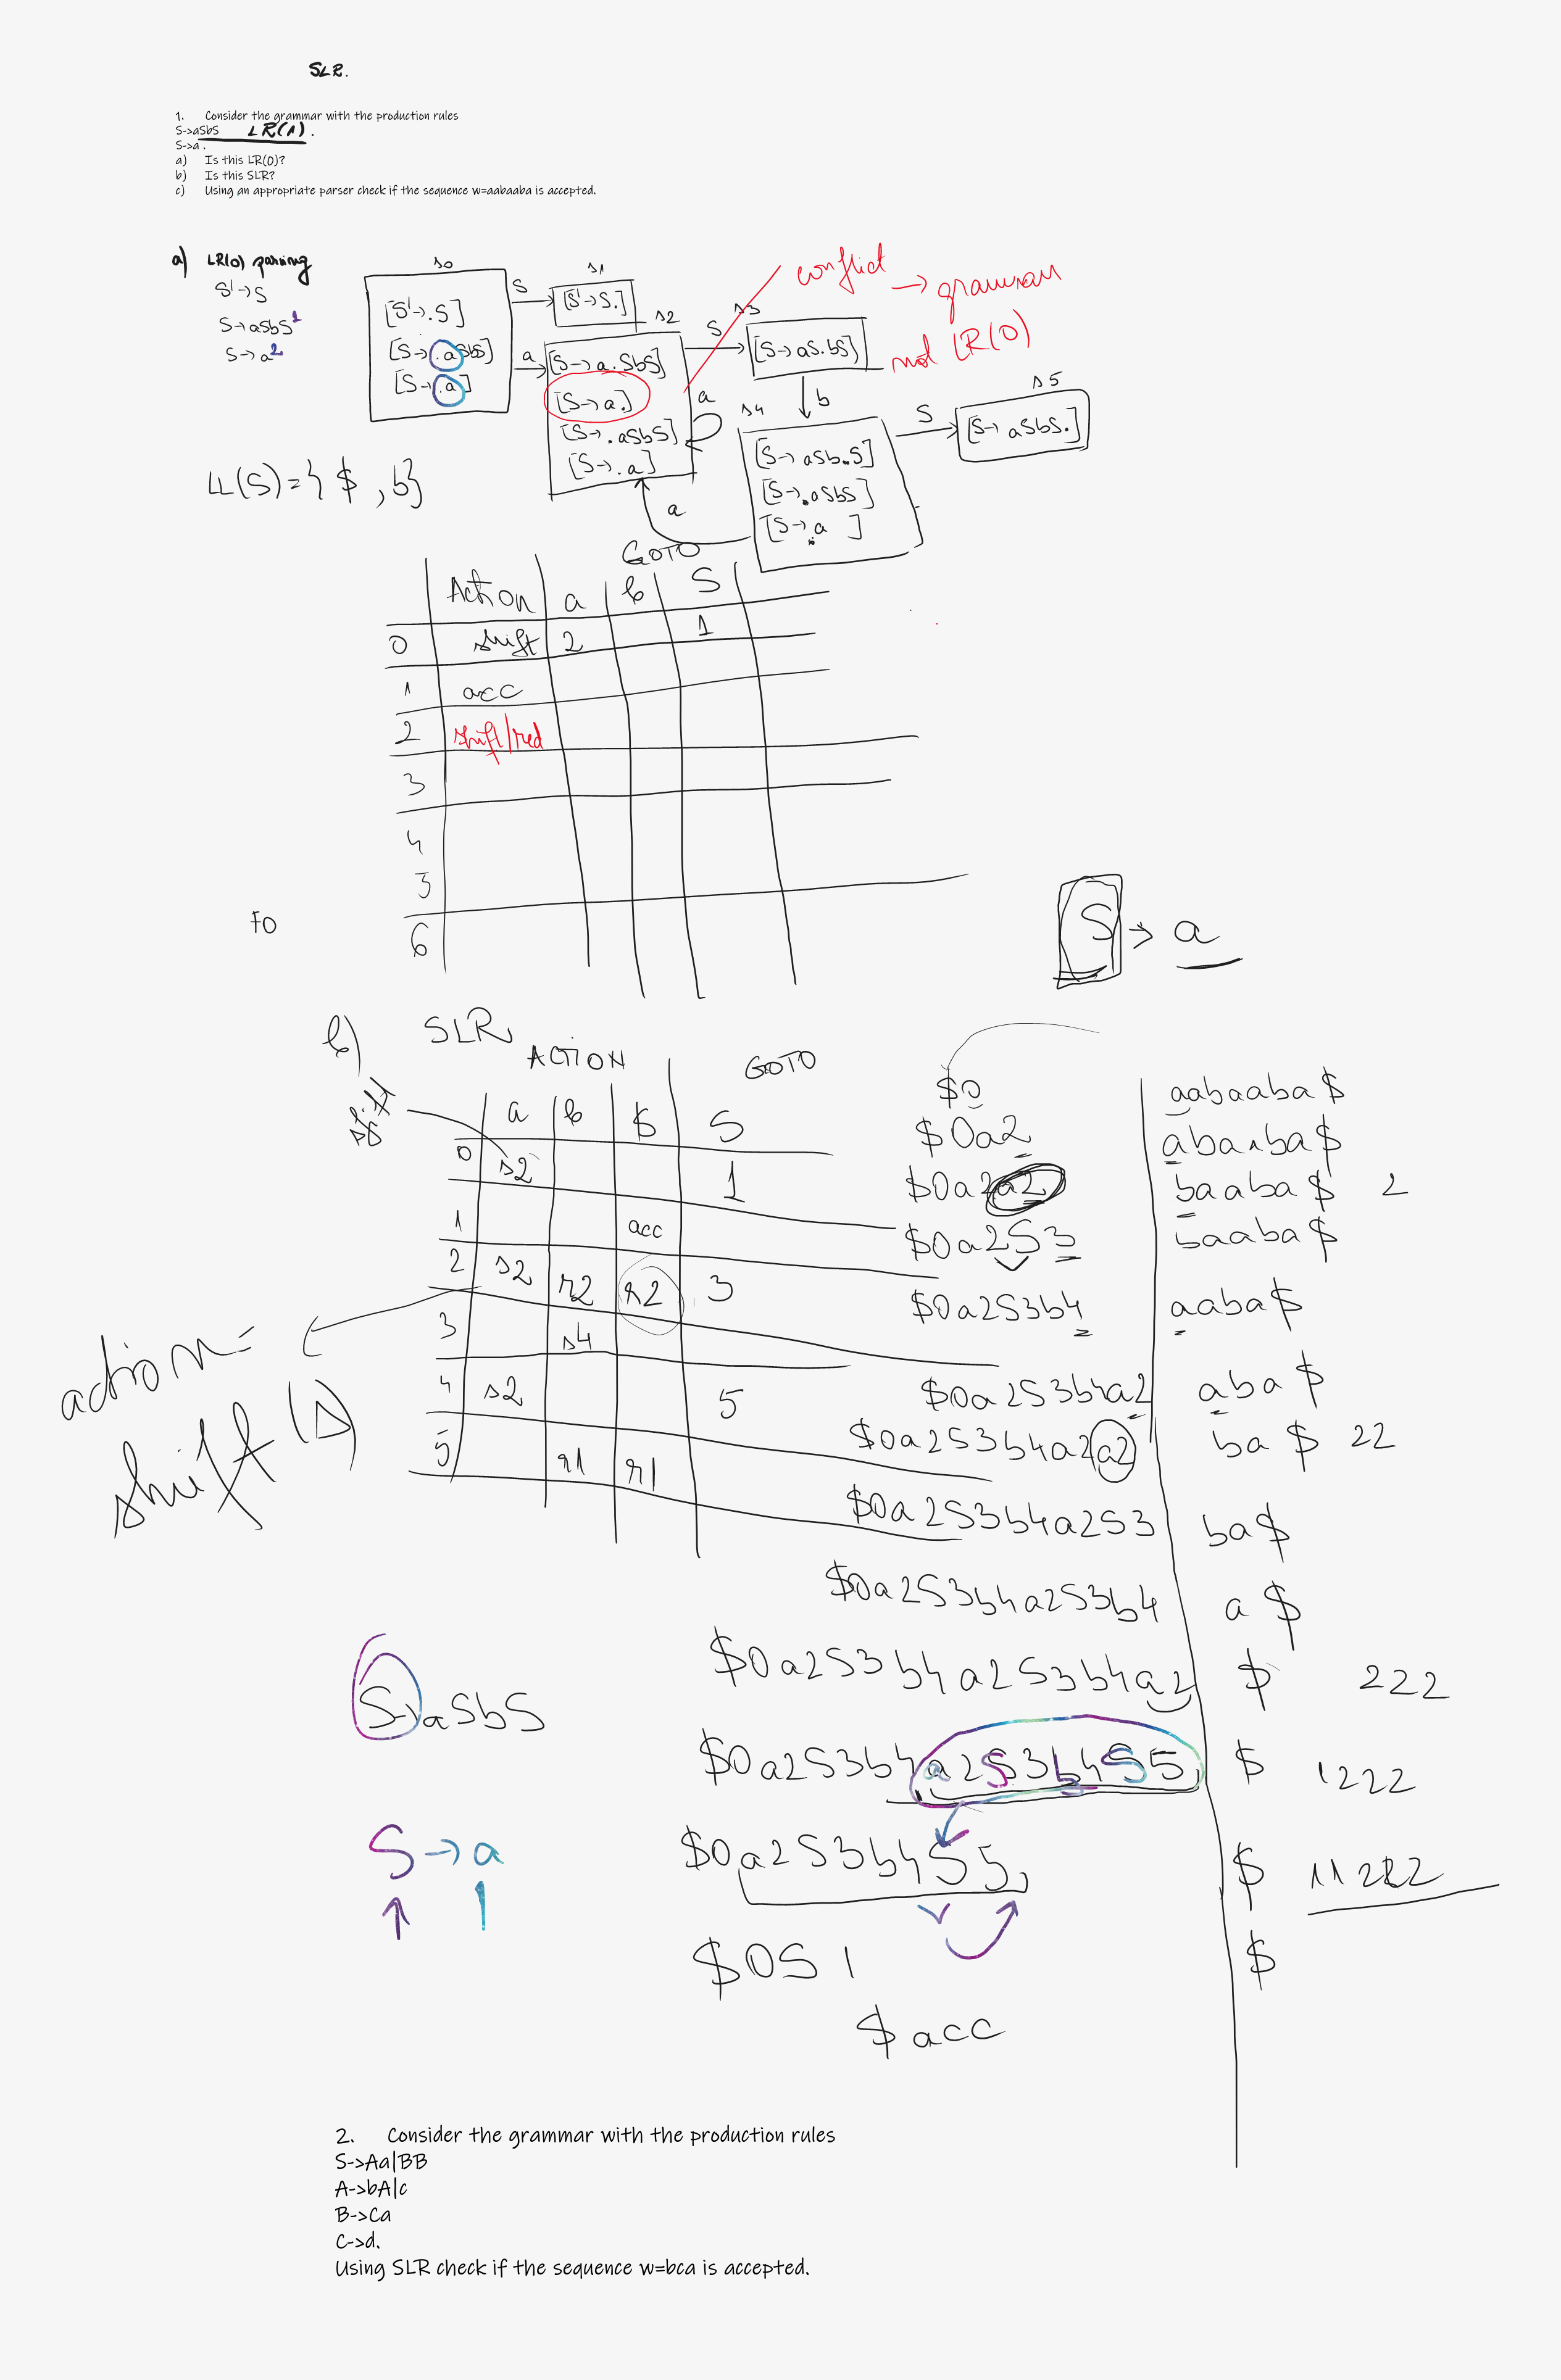 SLR.
1. Consider the grammar with the production rules
S->aSbS LR(1).
S->a.
a) Is this LR(0)?
b) Is this SLR?
c) Using an appropriate parser check if the sequence w=aabaaba is accepted.
a) LR(0) parsing
S'→S
S→aSbS 1
S→a 2
s0
[S'→.S]
[S→.aSbS]
[S→.a]
S
s1
[S'→S.]
a
s2
[S→a.SbS]
[S→a.]
[S→.aSbS]
[S→.a]
a
S
s3
[S→aS.bS]
b
s4
[S→aSb.S]
[S→.aSbS]
[S→.a]
a
S
s5
[S→aSbS.]
conflict → grammar
not LR(0)
(S)={$,b}
GOTO
Action a b S
0 shift 2 1
1 acc
2 shift/red
3
4
5
6
S→a
b) SLR
ACTION GOTO
shift
a b $ S
0 s2 1
1 acc
2 s2 r2 r2 3
3 s4
4 s2 5
5 r1 r1
action=
shift(s)
$0 aabaaba$
$0a2 abaaba$
$0a2a2 baaba$ 2
$0a2S3 baaba$
$0a2S3b4 aaba$
$0a2S3b4a2 aba$
$0a2S3b4a2a2 ba$ 22
$0a2S3b4a2S3 ba$
$0a2S3b4a2S3b4 a$
$0a2S3b4a2S3b4a2 $ 222
S→aSbS
$0a2S3b4a2S3b4S5 $ 1222
S→a
$0a2S3b4S5 $ 11222
$0S1 $
$acc
2. Consider the grammar with the production rules
S->Aa|BB
A->bA|c
B->Ca
C->d.
Using SLR check if the sequence w=bca is accepted.